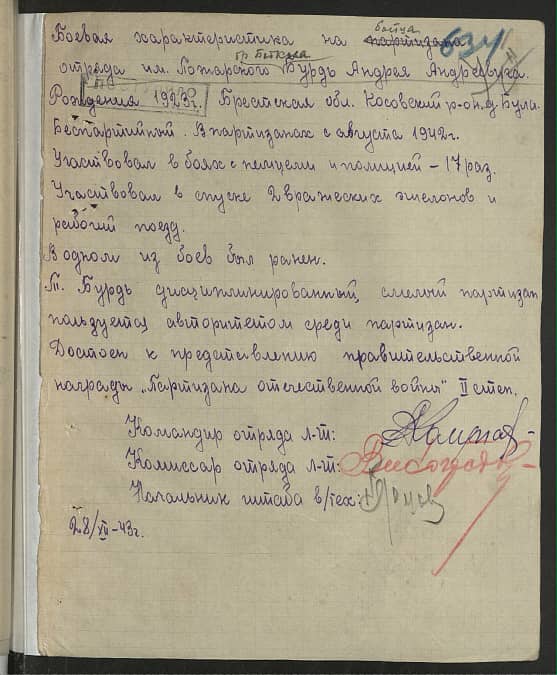 бойца 634
Боевая характеристика на партизана
бр. Беккера
отряда им. Пожарского Бурдь Андрея Андреевича.
Рождения 1923г. Брестская обл. Косовский р-он, д. Була.
Беспартийный. В партизанах с августа 1942г.
Участвовал в боях с немцами и полицией – 17 раз.
Участвовал в спуске 2 вражеских эшелонов и
рабочий поезд.
В одном из боев был ранен.
Т. Бурдь дисциплинированный, смелый партизан
пользуется авторитетом среди партизан.
Достоен к предствлению правительственной
награды „Партизана отечественной войны" II степ.
Командир отряда л-т:
Комиссар отряда л-т:
Начальник штаба в/тех:
28/XII-43г.